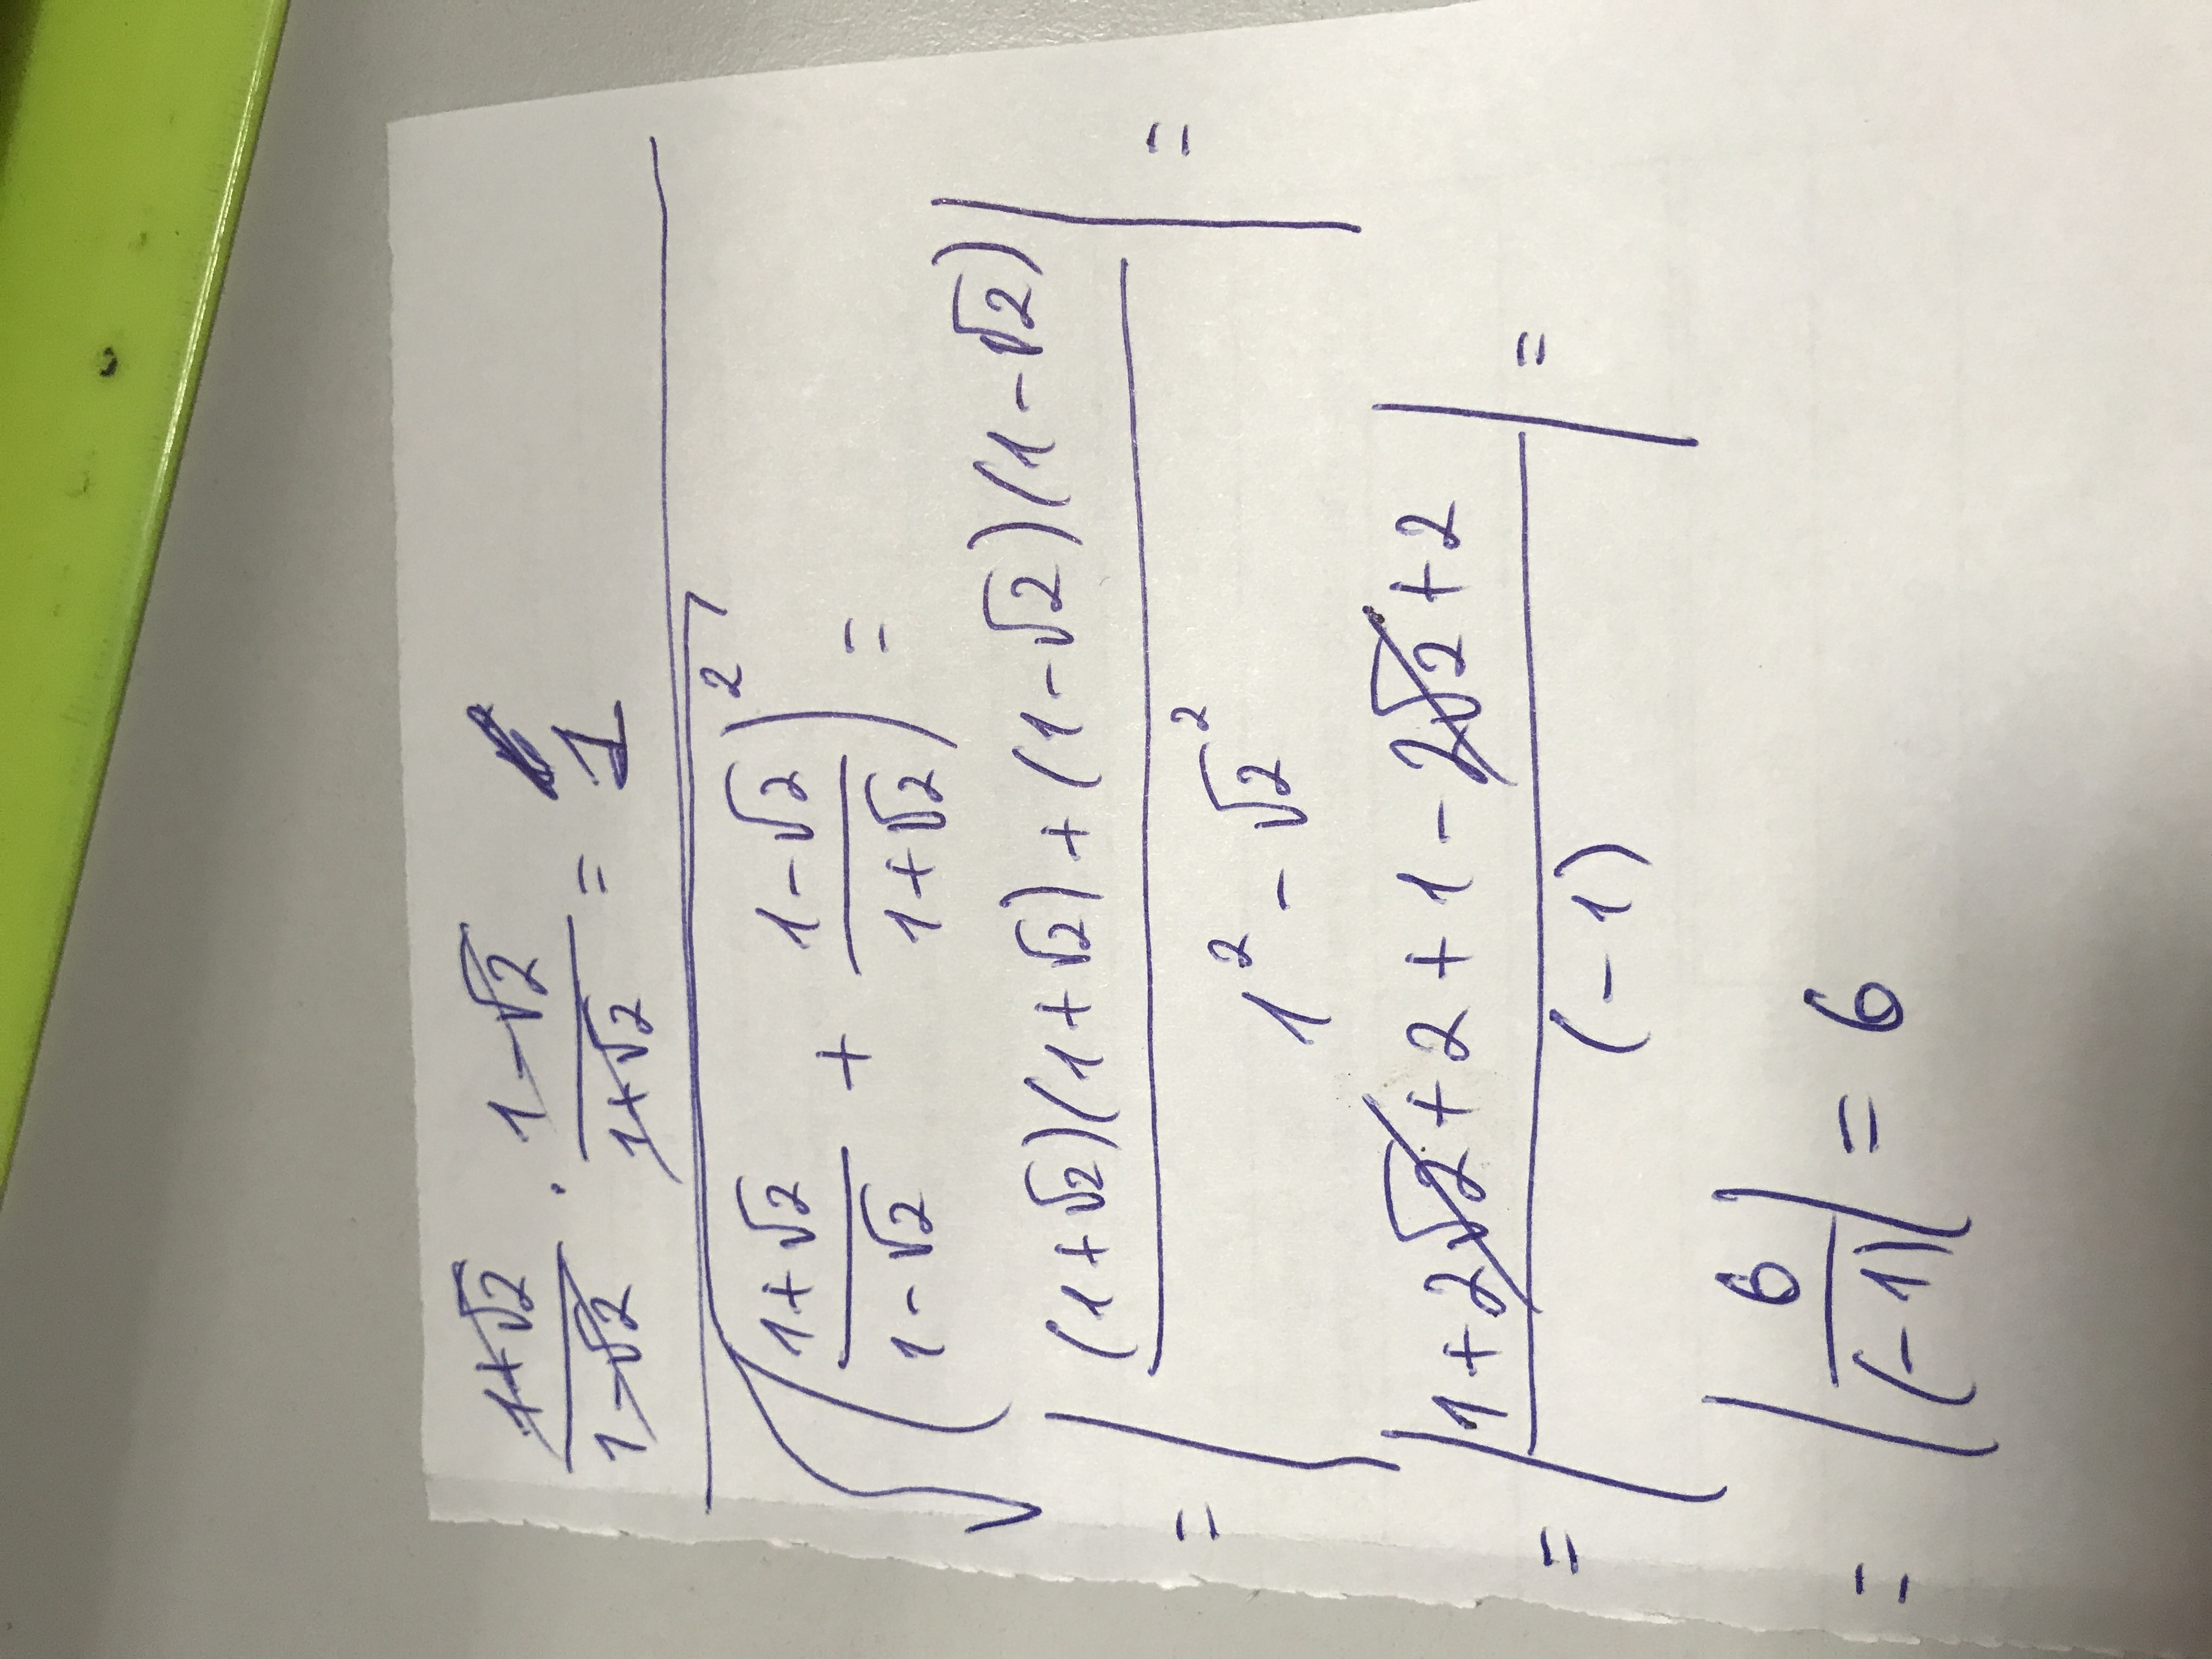 (1+√2)/(1-√2) · (1-√2)/(1+√2) = 1
√(((1+√2)/(1-√2) + (1-√2)/(1+√2))²) =
= |((1+√2)(1+√2)+(1-√2)(1-√2))/(1²-√2²)| =
= |(1+2√2+2+1-2√2+2)/(-1)| =
= |6/(-1)| = 6